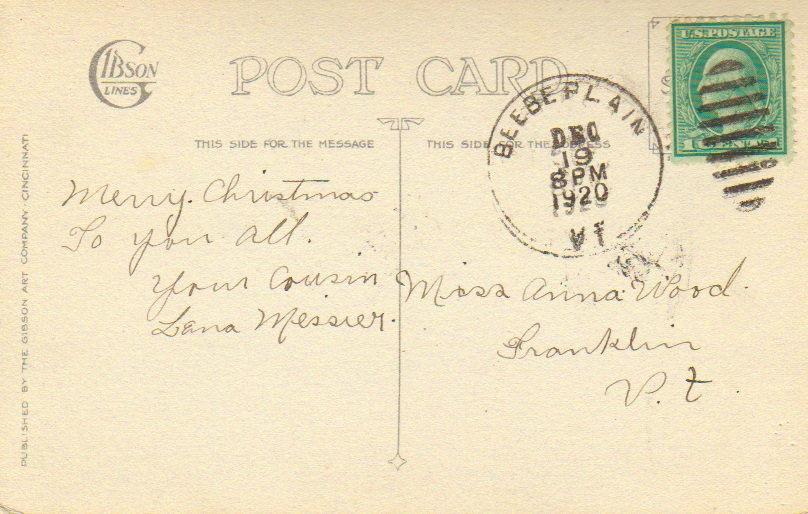 GIBSON
LINES
POST CARD
U.S. POSTAGE
THIS SIDE FOR THE MESSAGE
THIS SIDE FOR THE
BEEBE PLAIN
DEC
19
8 PM
1920
VT
Merry Christmas
To you all.
Your Cousin
Lena Messier.
Miss Anna Wood.
Franklin
V.t.
PUBLISHED BY THE GIBSON ART COMPANY, CINCINNATI